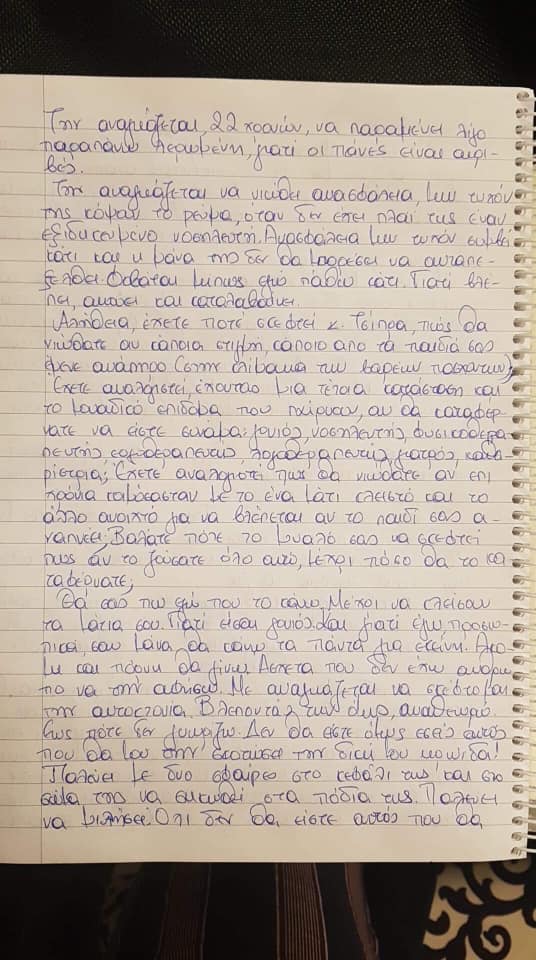 Την αναγκάζεται, 22 χρονών, να παραμένει λίγο
παραπάνω λερωμένη, γιατί οι πάνες είναι ακρι-
βές.
Την αναγκάζεται να νιώθει ανασφάλεια,
της κόψαν το ρεύμα, όταν δεν έχει πλάι της έναν
εξιδικευμένο νοσηλευτή. Ανασφάλεια
κάτι και η μάνα της δεν θα μπορέσει να
Φοβάται μήπως εγώ πάθω κάτι. Γιατί βλέ-
πει, ακούει και καταλαβαίνει.
Αλήθεια, έχετε ποτέ σκεφτεί κ. Τσίπρα, πώς θα
νιώθατε αν κάποια στιγμή, κάποιο από τα παιδιά σας
έμενε ανάπηρο (στην των βαρέων παθήσεων);
Έχετε αναλογιστεί, έχοντας μια τέτοια κατάσταση και
το μοναδικό επίδομα που παίρνουν, αν θα καταφέρ-
νατε να είστε συνάμα: γονιός, νοσηλευτής, φυσικοθερα-
πευτής εργοθεραπευτής λογοθεραπευτής, γιατρός, καθα-
ρίστρια; Έχετε αναλογιστεί πως θα νιώθατε αν επί
χρόνια κοιμόσασταν με το ένα μάτι κλειστό και το
άλλο ανοιχτό για να βλέπεται αν το παιδί σας α-
ναπνέει; Βάλατε ποτέ το μυαλό σας να σκεφτεί
πως αν το ζούσατε όλο αυτό, μέχρι πόσο θα το κα-
ταφέρνατε;
Θα σας πω εγώ που το κάνω. Μέχρι να κλείσουν
τα μάτια σου. Γιατί είσαι γονιός. Και γιατί εγώ προσω-
πικά, σαν μάνα, θα κάνω τα πάντα για εκείνη. Ακό-
μα και πόρνη θα γίνω. Άσχετα που δεν έχω άνθρω-
πο να την αφήσω. Με αναγκάζεται να σκέφτομαι
την αυτοκτονία. Βλέποντάς την όμως, αναθεωρώ.
Ως πότε δεν γνωρίζω. Δεν θα είστε όμως εσείς αυτός
που θα μου την σκοτώσει την δική μου κοπέλα!
Παλεύει με δυο σφαίρες στο κεφάλι της και στο
σώμα της να σηκωθεί στα πόδια της. Παλεύει
να μιλήσει. Όχι δεν θα είστε αυτός που θα